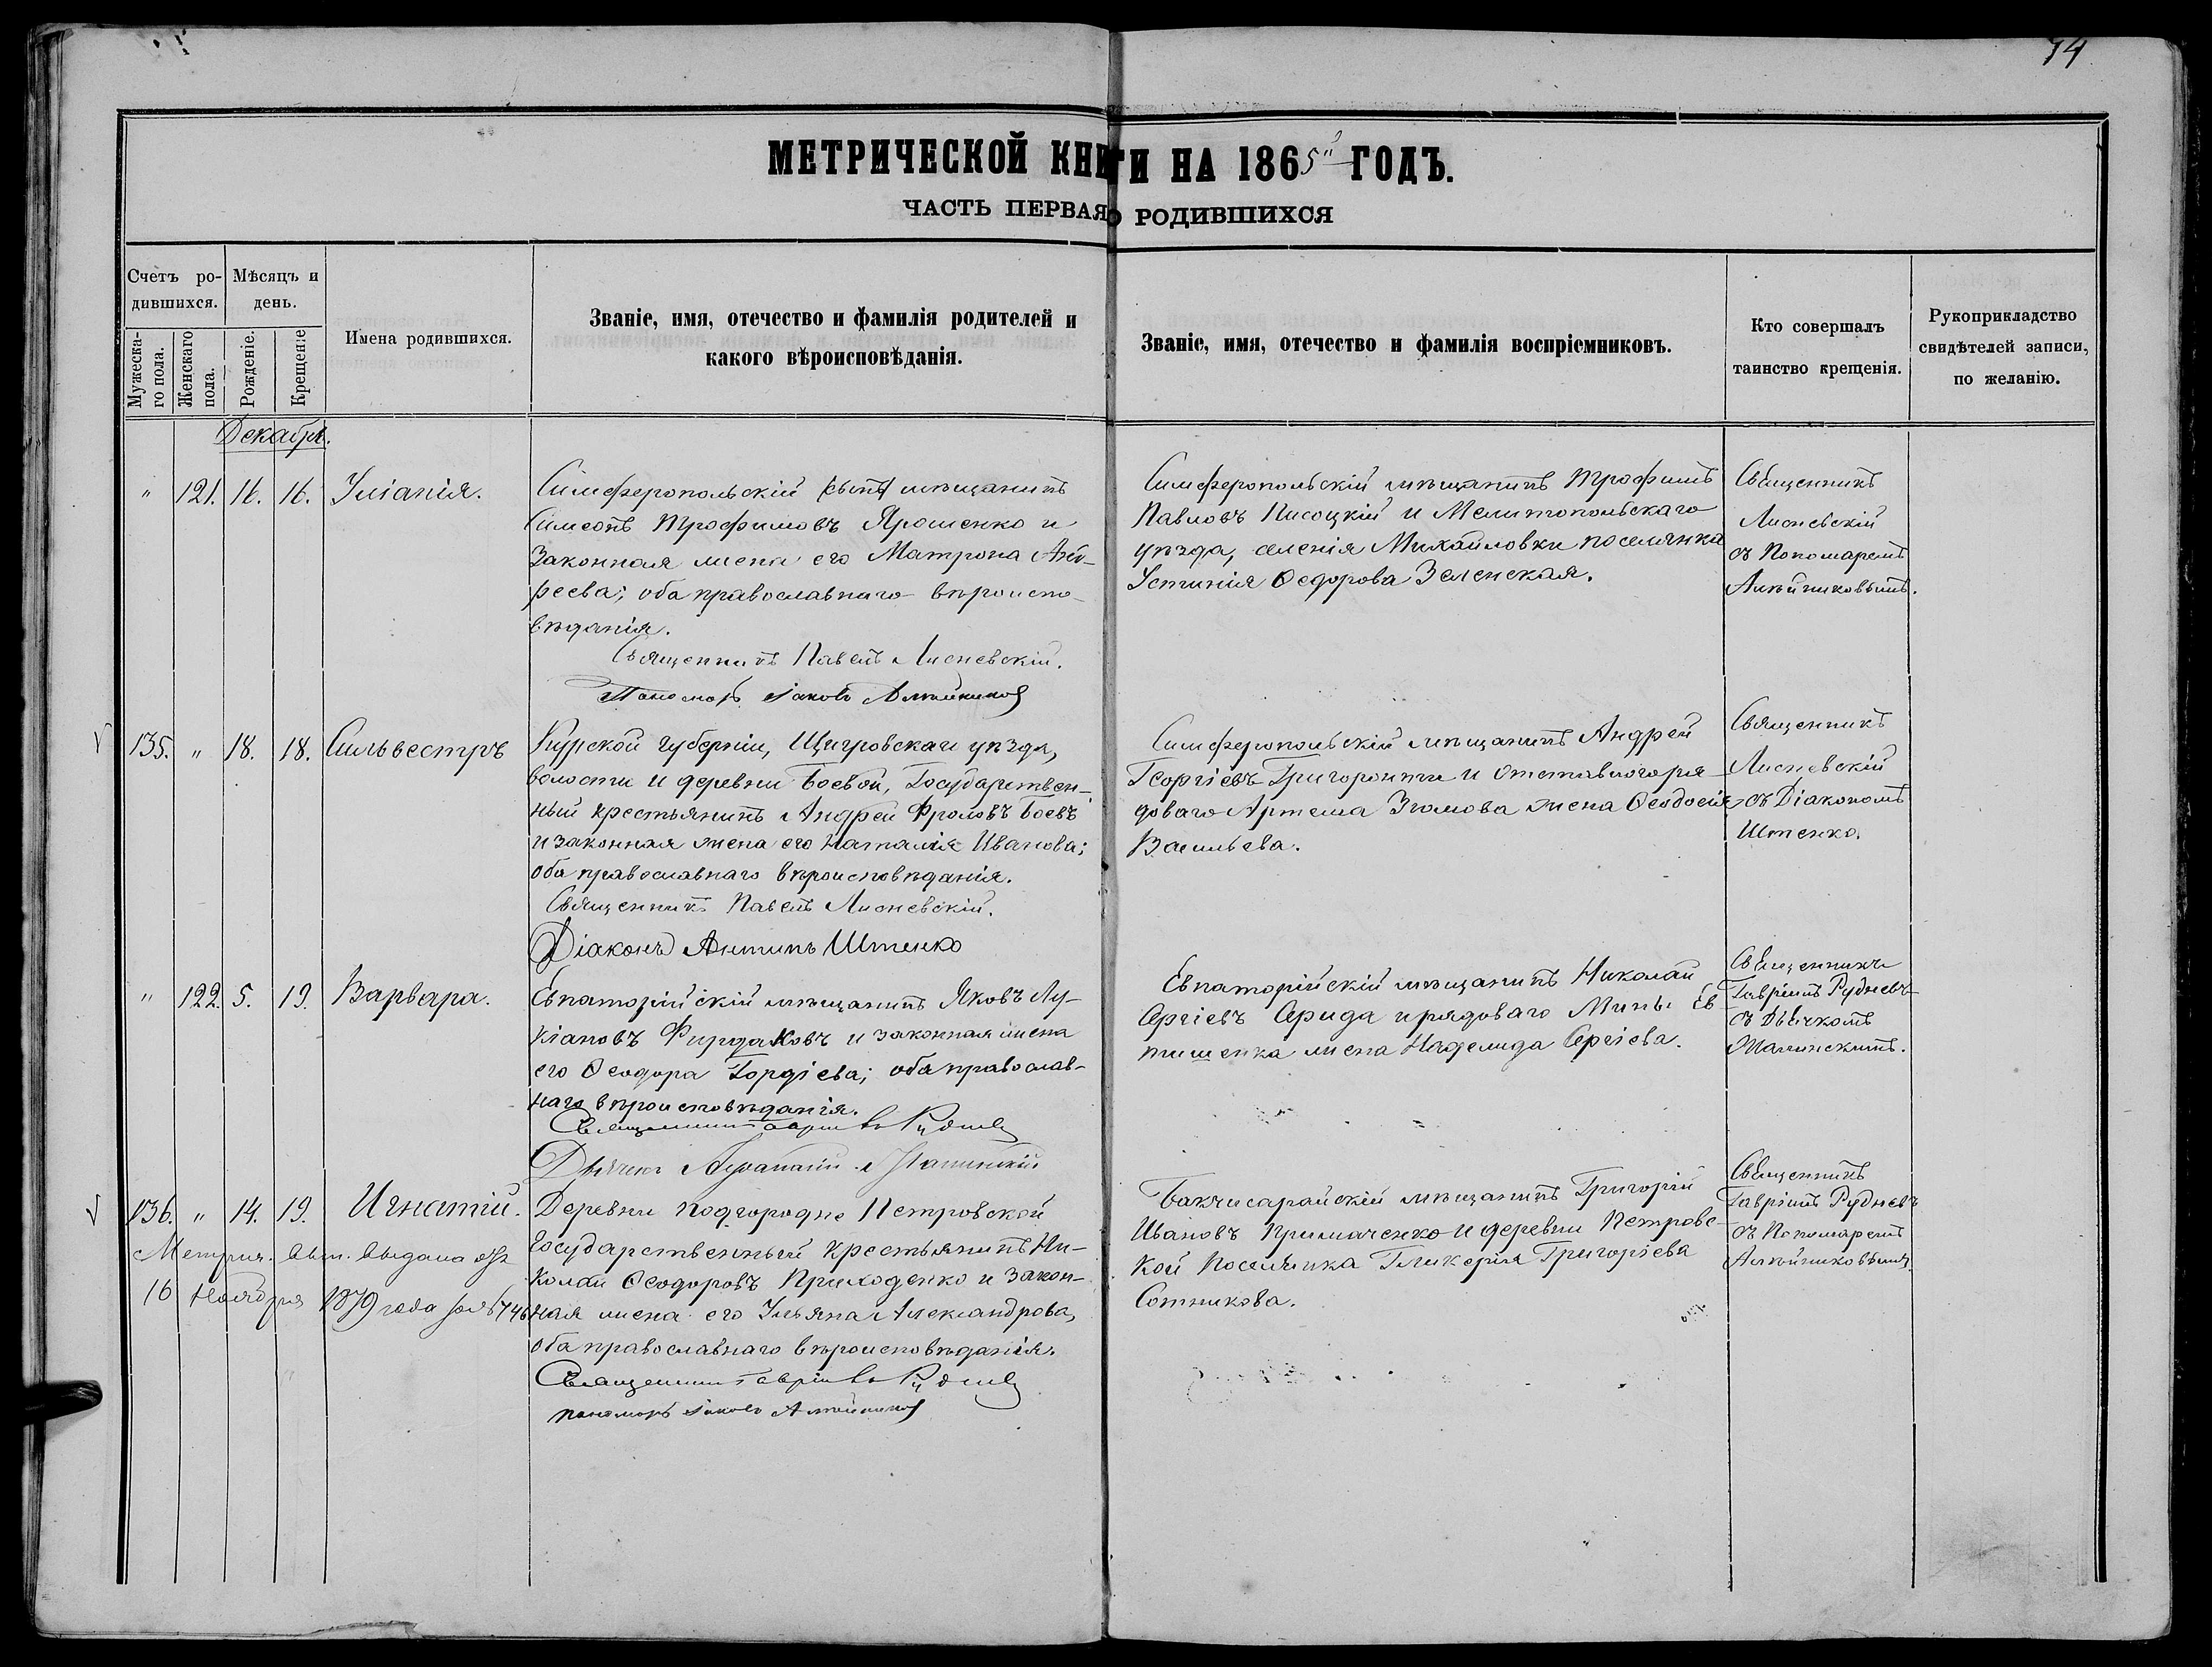 74
МЕТРИЧЕСКОЙ КНИГИ НА 1865й ГОДЪ.
ЧАСТЬ ПЕРВАЯ О РОДИВШИХСЯ
Счетъ ро-
дившихся.
Мужеска-
го пола.
Женскаго
пола.
Мѣсяцъ и
день.
Рожденіе.
Крещеніе
Имена родившихся.
Званіе, имя, отечество и фамилія родителей и
какого вѣроисповѣданія.
Званіе, имя, отечество и фамилія воспріемниковъ.
Кто совершалъ
таинство крещенія.
Рукоприкладство
свидѣтелей записи,
по желанію.
Декабрь.
" 121. 16. 16. Уліанія.
Симферопольскій мѣщанинъ
Симеонъ Трофимовъ Ярошенко и
законная жена его Матрона Анд-
реева; оба православнаго вѣроиспо-
вѣданія.
Священникъ Павелъ Лисневскій.
Пономарь Іаковъ Алтойниковъ
Симферопольскій мѣщанинъ Трофимъ
Павловъ Писоцкій и Мелитопольскаго
уѣзда, селенія Михайловки поселянка
Устинія Ѳедорова Зеленская.
Священникъ
Лисневскій
съ Пономаремъ
135. " 18. 18. Сильвестръ
Курской губерніи, Щигровскаго уѣзда,
волости и деревни Боевой, Государствен-
ный крестьянинъ Андрей Фроловъ Боевъ
и законная жена его Наталія Иванова;
оба православнаго вѣроисповѣданія.
Священникъ Павелъ Лисневскій.
Діаконъ Антипъ Штенко
Симферопольскій мѣщанинъ Андрей
Георгіевъ Григоронин и отставного ря-
доваго Артема Згомова жена Ѳеодосія
Васильева.
Священникъ
Лисневскій
съ Діакономъ
Штенко.
" 122. 5. 19. Варвара.
Евпаторійскій мѣщанинъ Яковъ Лу-
кіановъ Фирдаковъ и законная жена
его Ѳеодора Гордіева; оба православ-
наго вѣроисповѣданія.
Священникъ Гавріилъ Рудневъ
Дьячекъ Малинскій
Евпаторійскій мѣщанинъ Николай
Сергіевъ Середа и рядоваго Мины Ев
тишенка жена Надежда Сергіева.
Священникъ
Гавріилъ Рудневъ
съ Дьячкомъ
Малинскимъ.
136. " 14. 19. Игнатій.
Метрич. выдана
16 Ноября 1879 года за № 746
Деревни подгородне Петровской
Государственный крестьянинъ Ни-
колай Ѳеодоровъ Приходенко и закон-
ная жена его Ульяна Александрова,
оба православнаго вѣроисповѣданія.
Священникъ Гавріилъ Рудневъ
пономарь Іаковъ
Бакчисарайскій мѣщанинъ Григорій
Ивановъ Примаченко и деревни Петровс-
кой Поселянка Гликерія Григоріева
Сотникова.
Священникъ
Гавріилъ Рудневъ
съ Пономаремъ